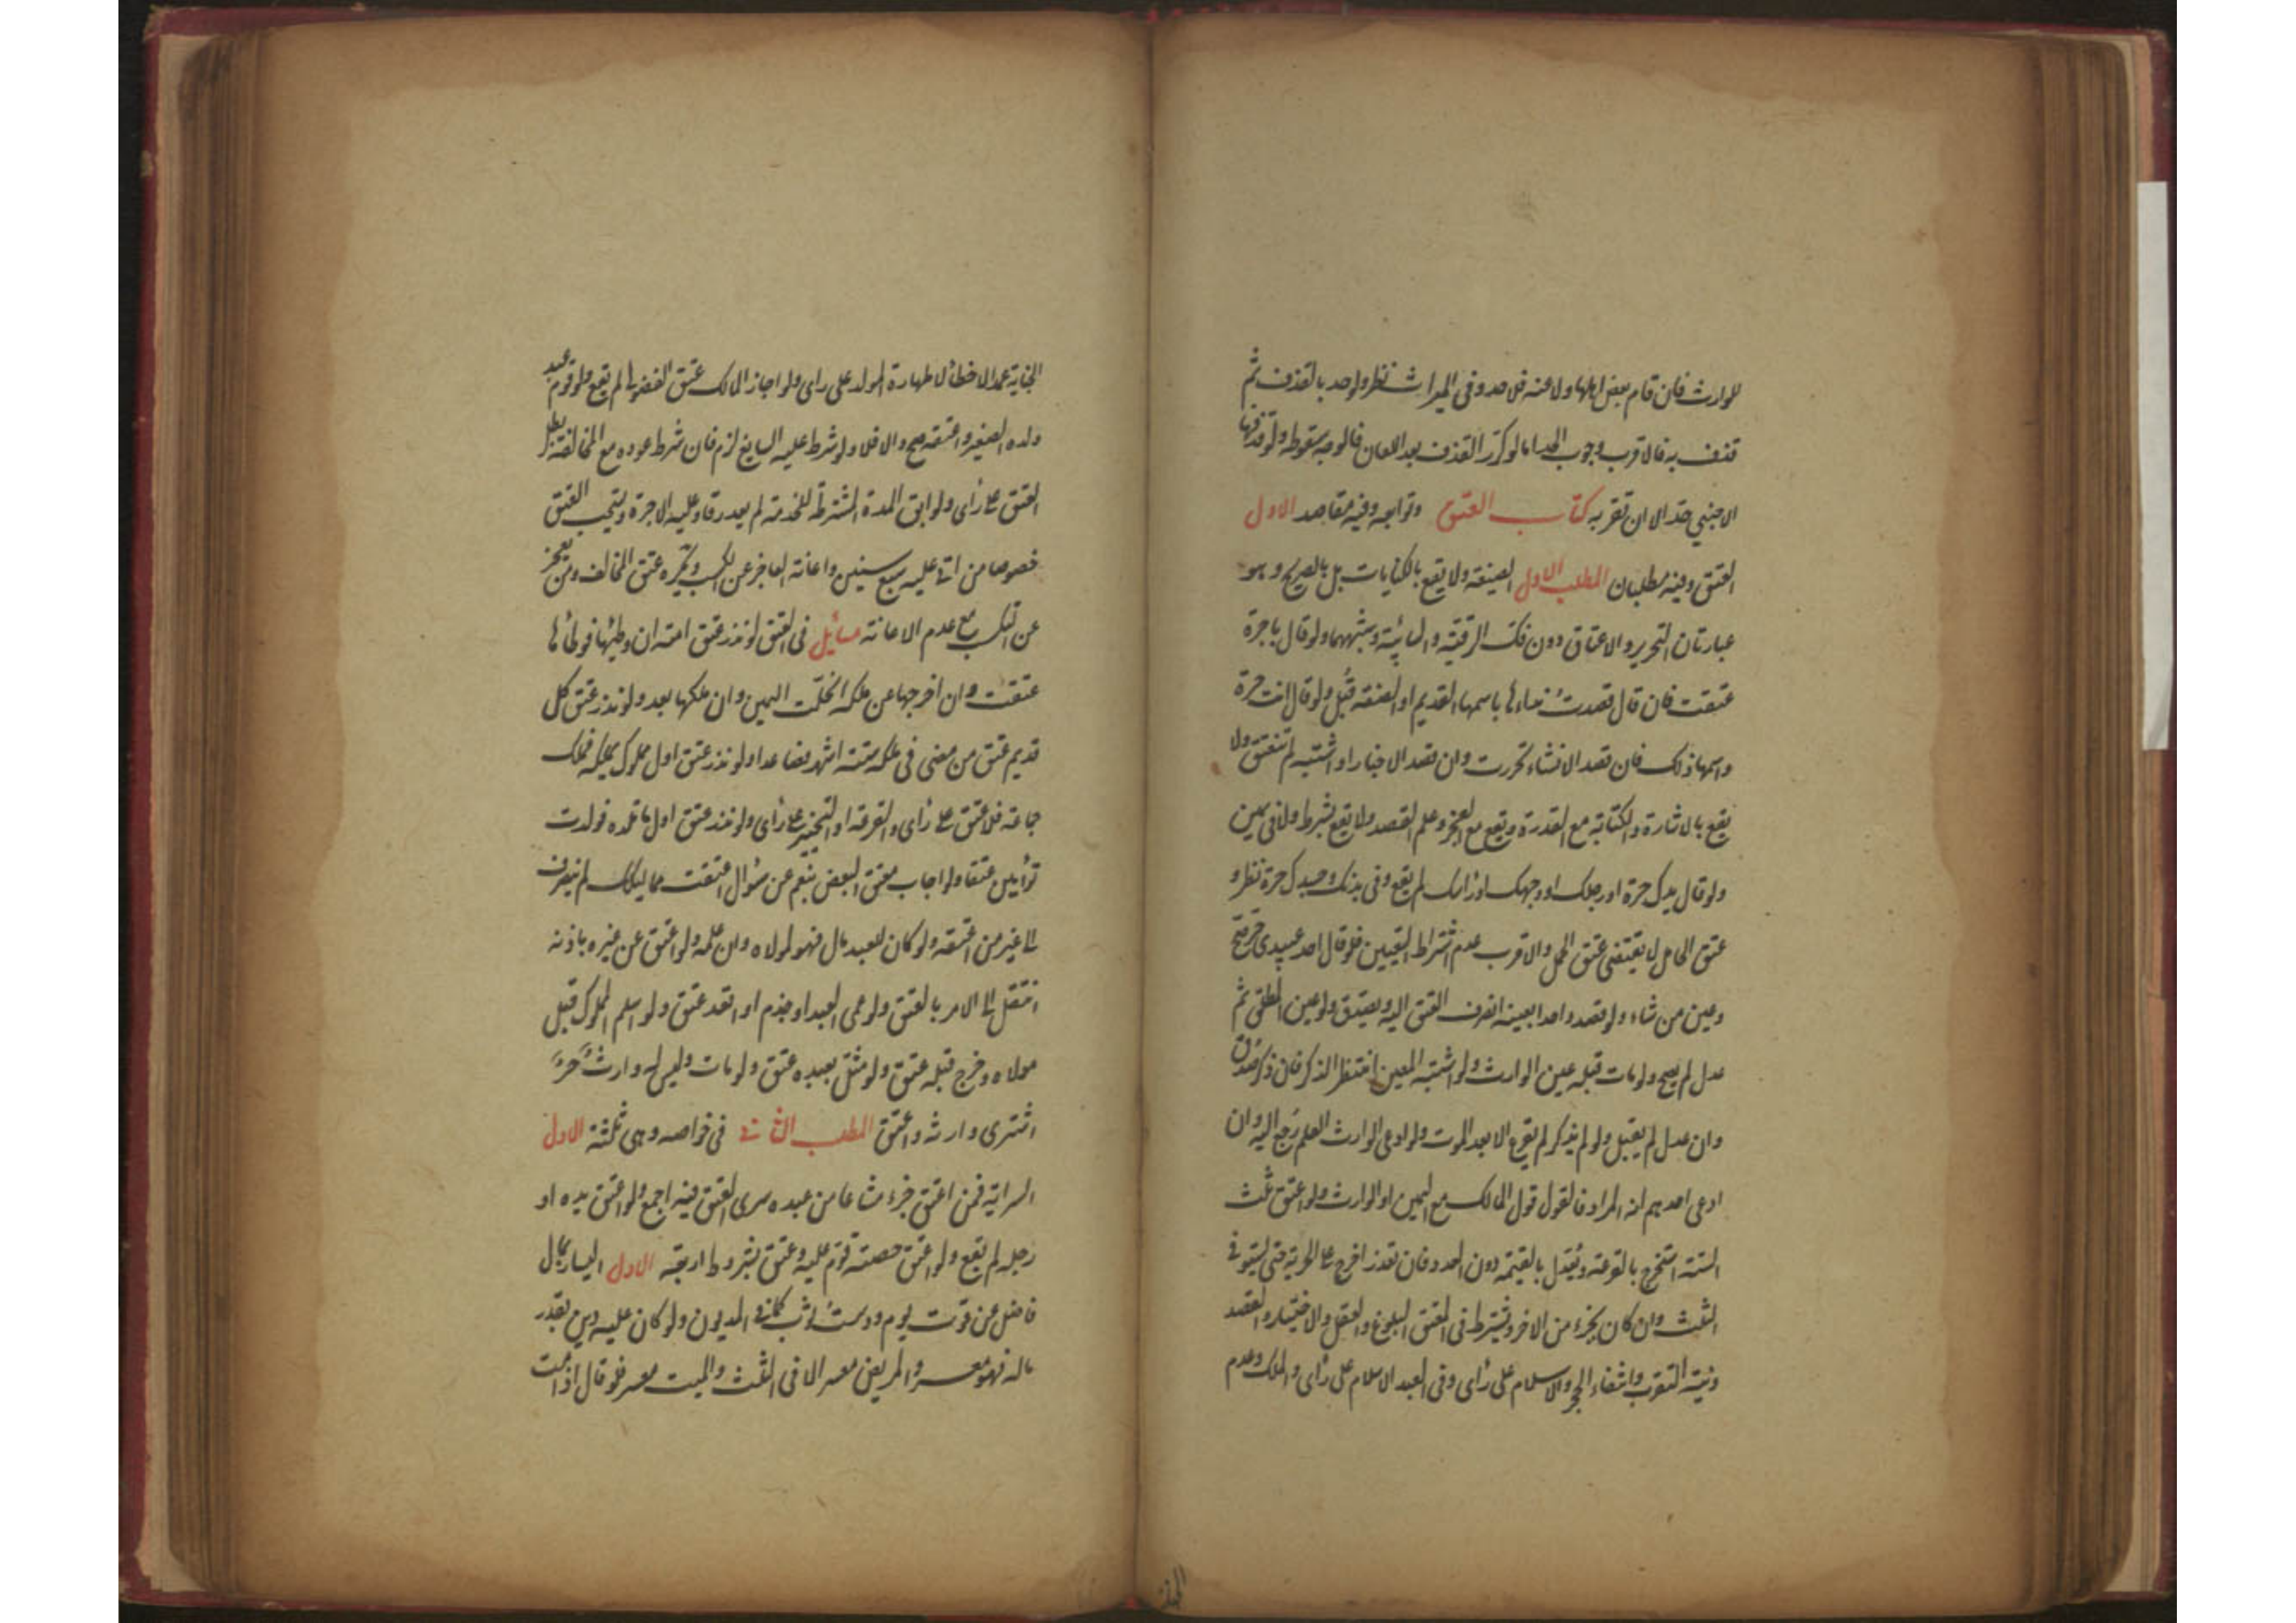 للوارث فان قام بعض اهلها ولاعنه فلا حد وفى الميراث نظر ولو حد بالقذف ثم
قذف به فالاقرب وجوب الحد اما لو كرّر القذف بعد اللعان فالوجه سقوطه ولو قذفها
الاجنبي حدّ الا ان تقر به كتاب العتق وتوابعه وفيه مقاصد الاول
العتق وفيه مطلبان المطلب الاول الصيغة ولا يقع بالكنايات بل بالصريح وهو
عبارتان التحرير والاعتاق دون فك الرقبة والسائبة وشبههما ولو قال يا حرة
عتقت فان قال قصدت نداءها باسمها القديم او الصفة قبل ولو قال انت حرة
واسمها ذلك فان قصد الانشاء تحررت وان قصد الاخبار او اشتبه لم تنعتق ولا
يقع بالاشارة والكتابة مع القدرة ويقع مع العجز وعلم القصد ولا يقع بشرط ولا فى يمين
ولو قال يدك حرة او رجلك او وجهك او رأسك لم يقع وفى بدنك وجسدك حرة نظر و
عتق الحامل لا يقتضى عتق الحمل والاقرب عدم اشتراط التعيين فلو قال احد عبيدى حر صح
وعين من شاء ولو قصد واحدا بعينه انصرف العتق اليه ويصدق ولو عين المطلق ثم
عدل لم يصح ولو مات قبله عين الوارث ولو اشتبه المعين انتظر الذكر فان ذكر صدق
وان عدل لم يقبل ولو لم يذكر لم يقرع الا بعد الموت ولو ادعى الوارث العلم رجع اليه وان
ادعى احدهم انه المراد فالقول قول المالك مع اليمين او الوارث ولو اعتق ثلث
الستة استخرج بالقرعة ويعدّل بالقيمة دون العدد فان تعذر اخرج على الحرية حتى يستوفى
الثلث وان كان بجزء من الاخر ويشترط فى المعتق البلوغ والعقل والاختيار والقصد
ونية التقرب وانتفاء الحجر والاسلام على رأى وفى العبد الاسلام على رأى والملك وعدم
الجناية عمدا لا خطأ لا طهارة المولد على راى ولو اجاز المالك عتق الفضولى لم يقع ولو قوم عبد
ولده الصغير واعتقه صح والا فلا ولو شرط عليه السايغ لزم فان شرط عوده مع المخالفة بطل
العتق على رأى ولو ابق المدة المشترطة للخدمة لم يعد رقا وعليه الاجرة ويستحب العتق
خصوصا من اتى عليه سبع سنين واعانة العاجز عن الكسب ويكره عتق المخالف ومن يعجز
عن الكسب مع عدم الاعانة مسائل فى العتق لو نذر عتق امته ان وطئها فوطئها
عتقت وان اخرجها عن ملكه انحلّت اليمين وان ملكها بعد ولو نذر عتق كل
قديم عتق من مضى فى ملكه ستة اشهر فصاعدا ولو نذر عتق اول مملوك يملكه فملك
جماعة فلا عتق على رأى والقرعة او التخيير على رأى ولو نذر عتق اول ما تلده فولدت
توأمين عتقا ولو اجاب معتق البعض بنعم عن سؤال اعتقت مماليكك لم ينصرف
الى غير من اعتقه ولو كان للعبد مال فهو لمولاه وان علمه ولو اعتق عن غيره باذنه
انتقل الى الامر بالعتق ولو عمى العبد او جذم او اقعد عتق ولو اسلم المملوك قبل
مولاه وخرج قبله عتق ولو مثل بعبده عتق ولو مات وليس له وارث حرّ
اشترى وارثه واعتق المطلب الثانى فى خواصه وهى ثلثة الاول
السراية فمن اعتق جزء مشاعا من عبده سرى العتق فيه اجمع ولو اعتق يده او
رجله لم يقع ولو اعتق حصته قوّم عليه وعتق بشروط اربعة الاول اليسار بمال
فاضل عن قوت يوم ودست ثوب كما فى المديون ولو كان عليه دين بقدر
ماله فهو معسر والمريض معسر الا فى الثلث والميت معسر فلو قال اذا مت